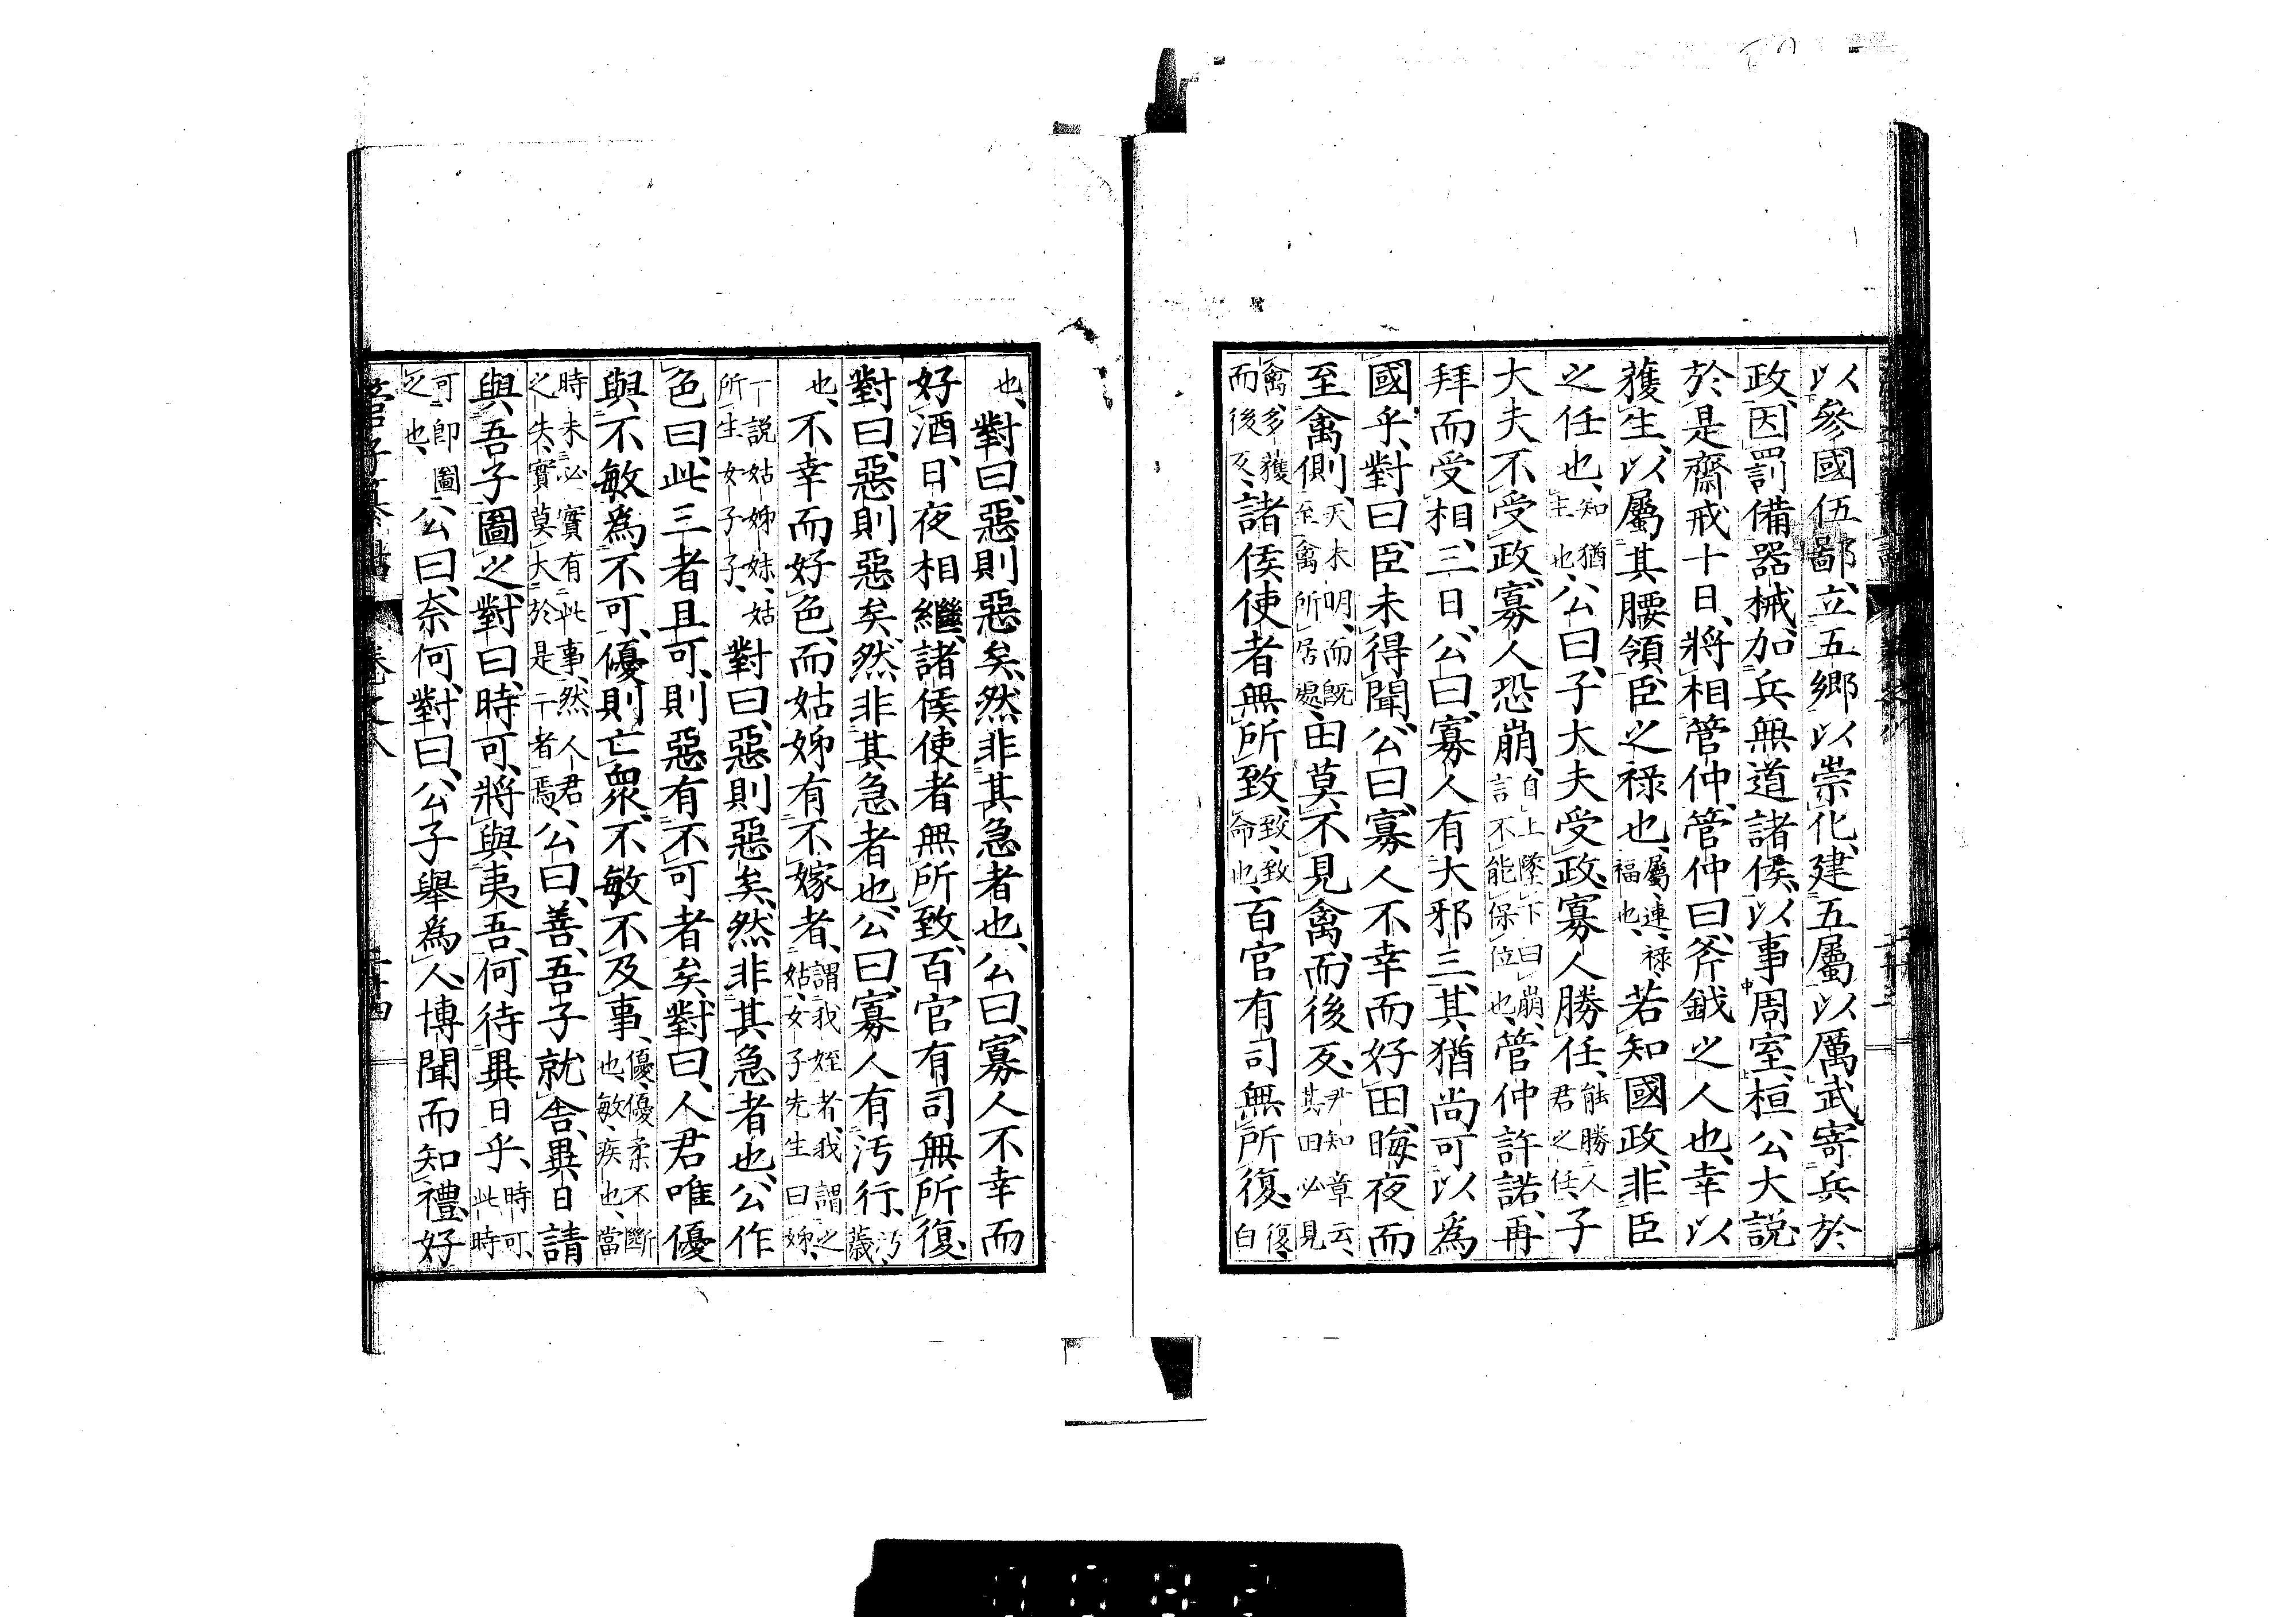 以參國伍鄙、立五鄉以崇化、建五屬以厲武、寄兵於
政、因罰備器械、加兵無道諸侯、以事周室、桓公大說、
於是齋戒十日、將相管仲、管仲曰、斧鉞之人也、幸以
獲生、以屬其腰領、臣之祿也、屬、連、祿、福也、若知國政、非臣
之任也、知猶主也、公曰、子大夫受政、寡人勝任、能勝人君之任、子
大夫不受政、寡人恐崩、自上墜下曰崩、言不能保位也、管仲許諾、再
拜而受相、三日、公曰、寡人有大邪三、其猶尚可以為
國乎、對曰、臣未得聞、公曰、寡人不幸而好田、晦夜而
至禽側、天未明、而既至禽所居處、田莫不見禽、而後反、尹知章云、其田必見
禽、多獲而後反、諸侯使者無所致、致、致命也、百官有司無所復、復、白
也、對曰、惡則惡矣、然非其急者也、公曰、寡人不幸而
好酒、日夜相繼、諸侯使者無所致、百官有司無所復、
對曰、惡則惡矣、然非其急者也、公曰、寡人有汚行、汚、薉
也、不幸而好色、而姑姊有不嫁者、謂我姪者、我謂之姑、女子先生曰姊、
一說姑姊妹、姑所生女子子、對曰、惡則惡矣、然非其急者也、公作
色曰、此三者且可、則惡有不可者矣、對曰、人君唯優
與不敏為不可、優則亡衆、不敏不及事、優、優柔不斷也、敏、疾也、當
時未必實有此事、然人君之失、實莫大於是二者焉、公曰、善、吾子就舍、異日請
與吾子圖之、對曰、時可、將與夷吾、何待異日乎、時可、此時
可即圖之也、公曰、奈何、對曰、公子舉為人、博聞而知禮、好